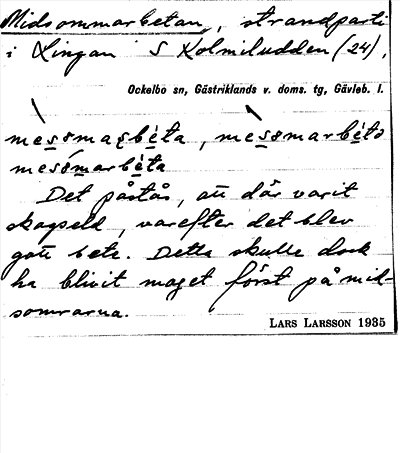 Midsommarbetan, strandparti
i Lingan S Kolmiludden (24),
Ockelbo sn, Gästriklands v. doms. tg, Gävleb. l.
messmaʂbéta, messmarbéta
messmarbéta
Det påstås, att där varit
skogseld, varefter det blev
gott bete. Detta skulle dock
ha blivit moget först på mid-
somrarna.
LARS LARSSON 1935